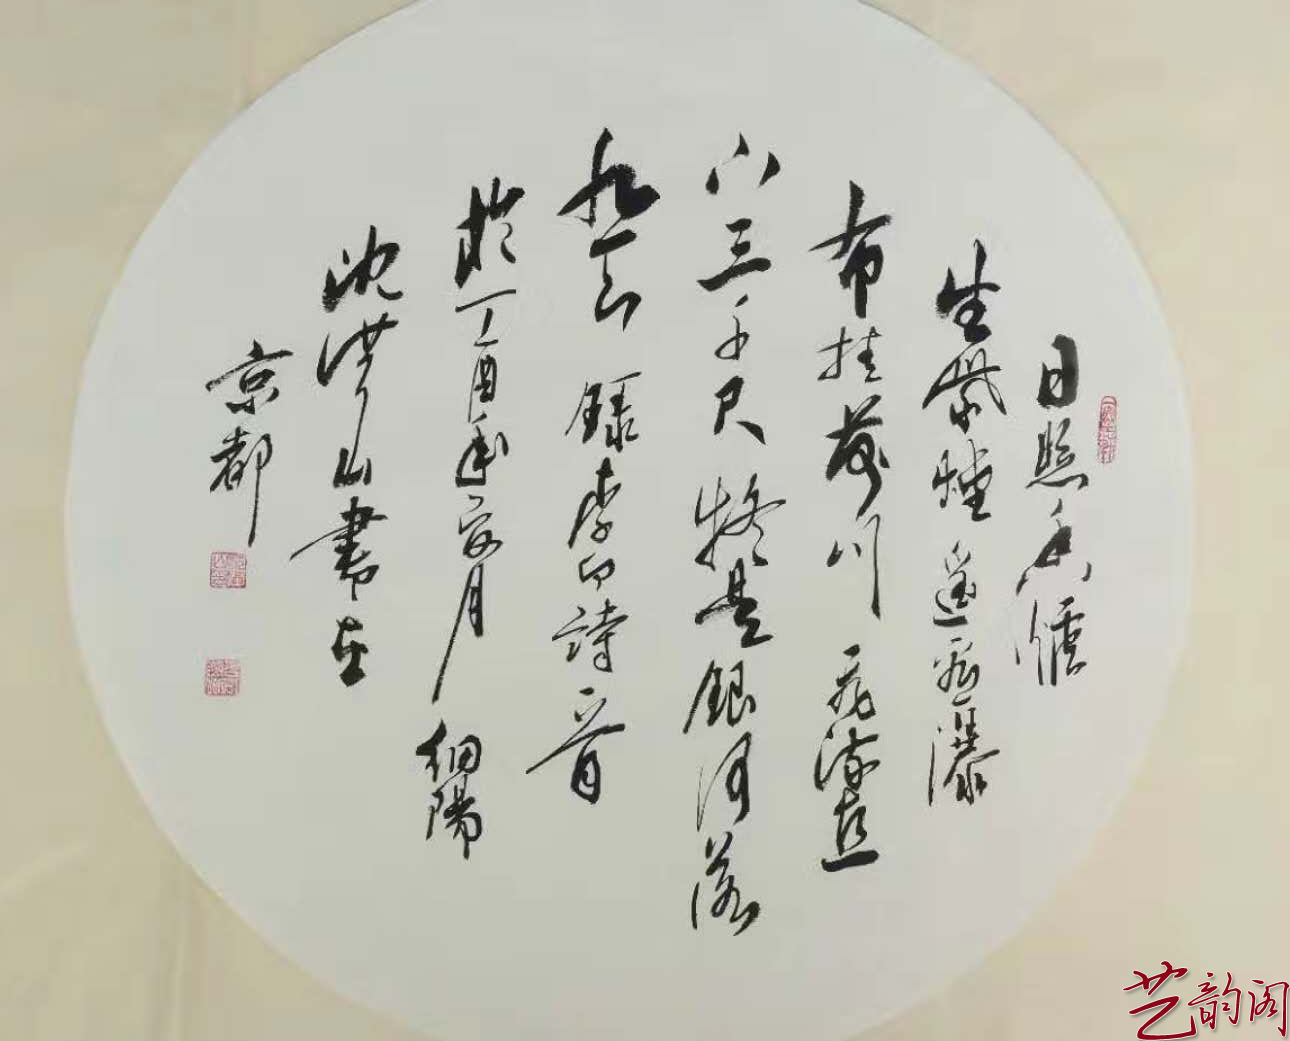 日照香炉
生紫煙遥看瀑
布挂前川飛流直
下三千尺疑是銀河落
九天 録李白詩一首
於丁酉年 月 細陽
沈洪山書於
京都
艺韵阁